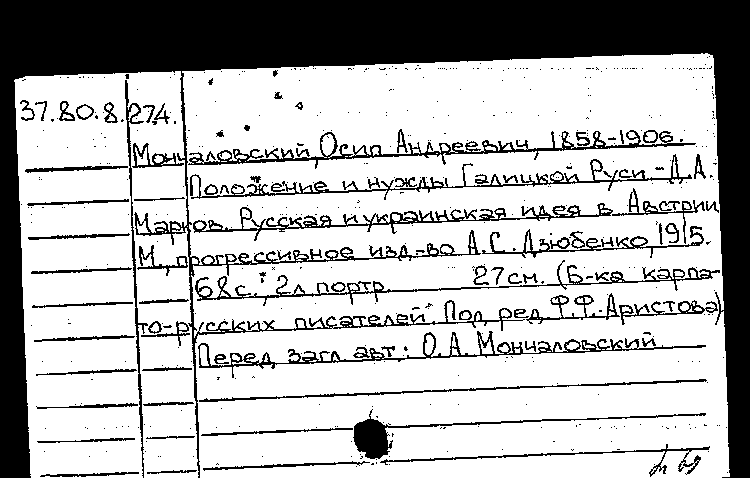 37.80.8.274.
Мончаловский, Осип Андреевич, 1858-1906.
Положение и нужды Галицкой Руси - Д.А.
Марков. Русская и украинская идея в Австрии
М., прогрессивное изд-во А.С. Дзюбенко, 1915.
68с.; 2л портр. 27см. (Б-ка карпа-
то-русских писателей. Под ред. Ф.Ф. Аристова)
Перед загл авт.: О.А. Мончаловский